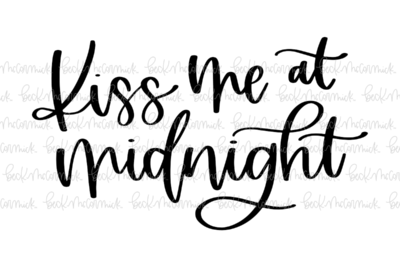 Kiss me at
midnight